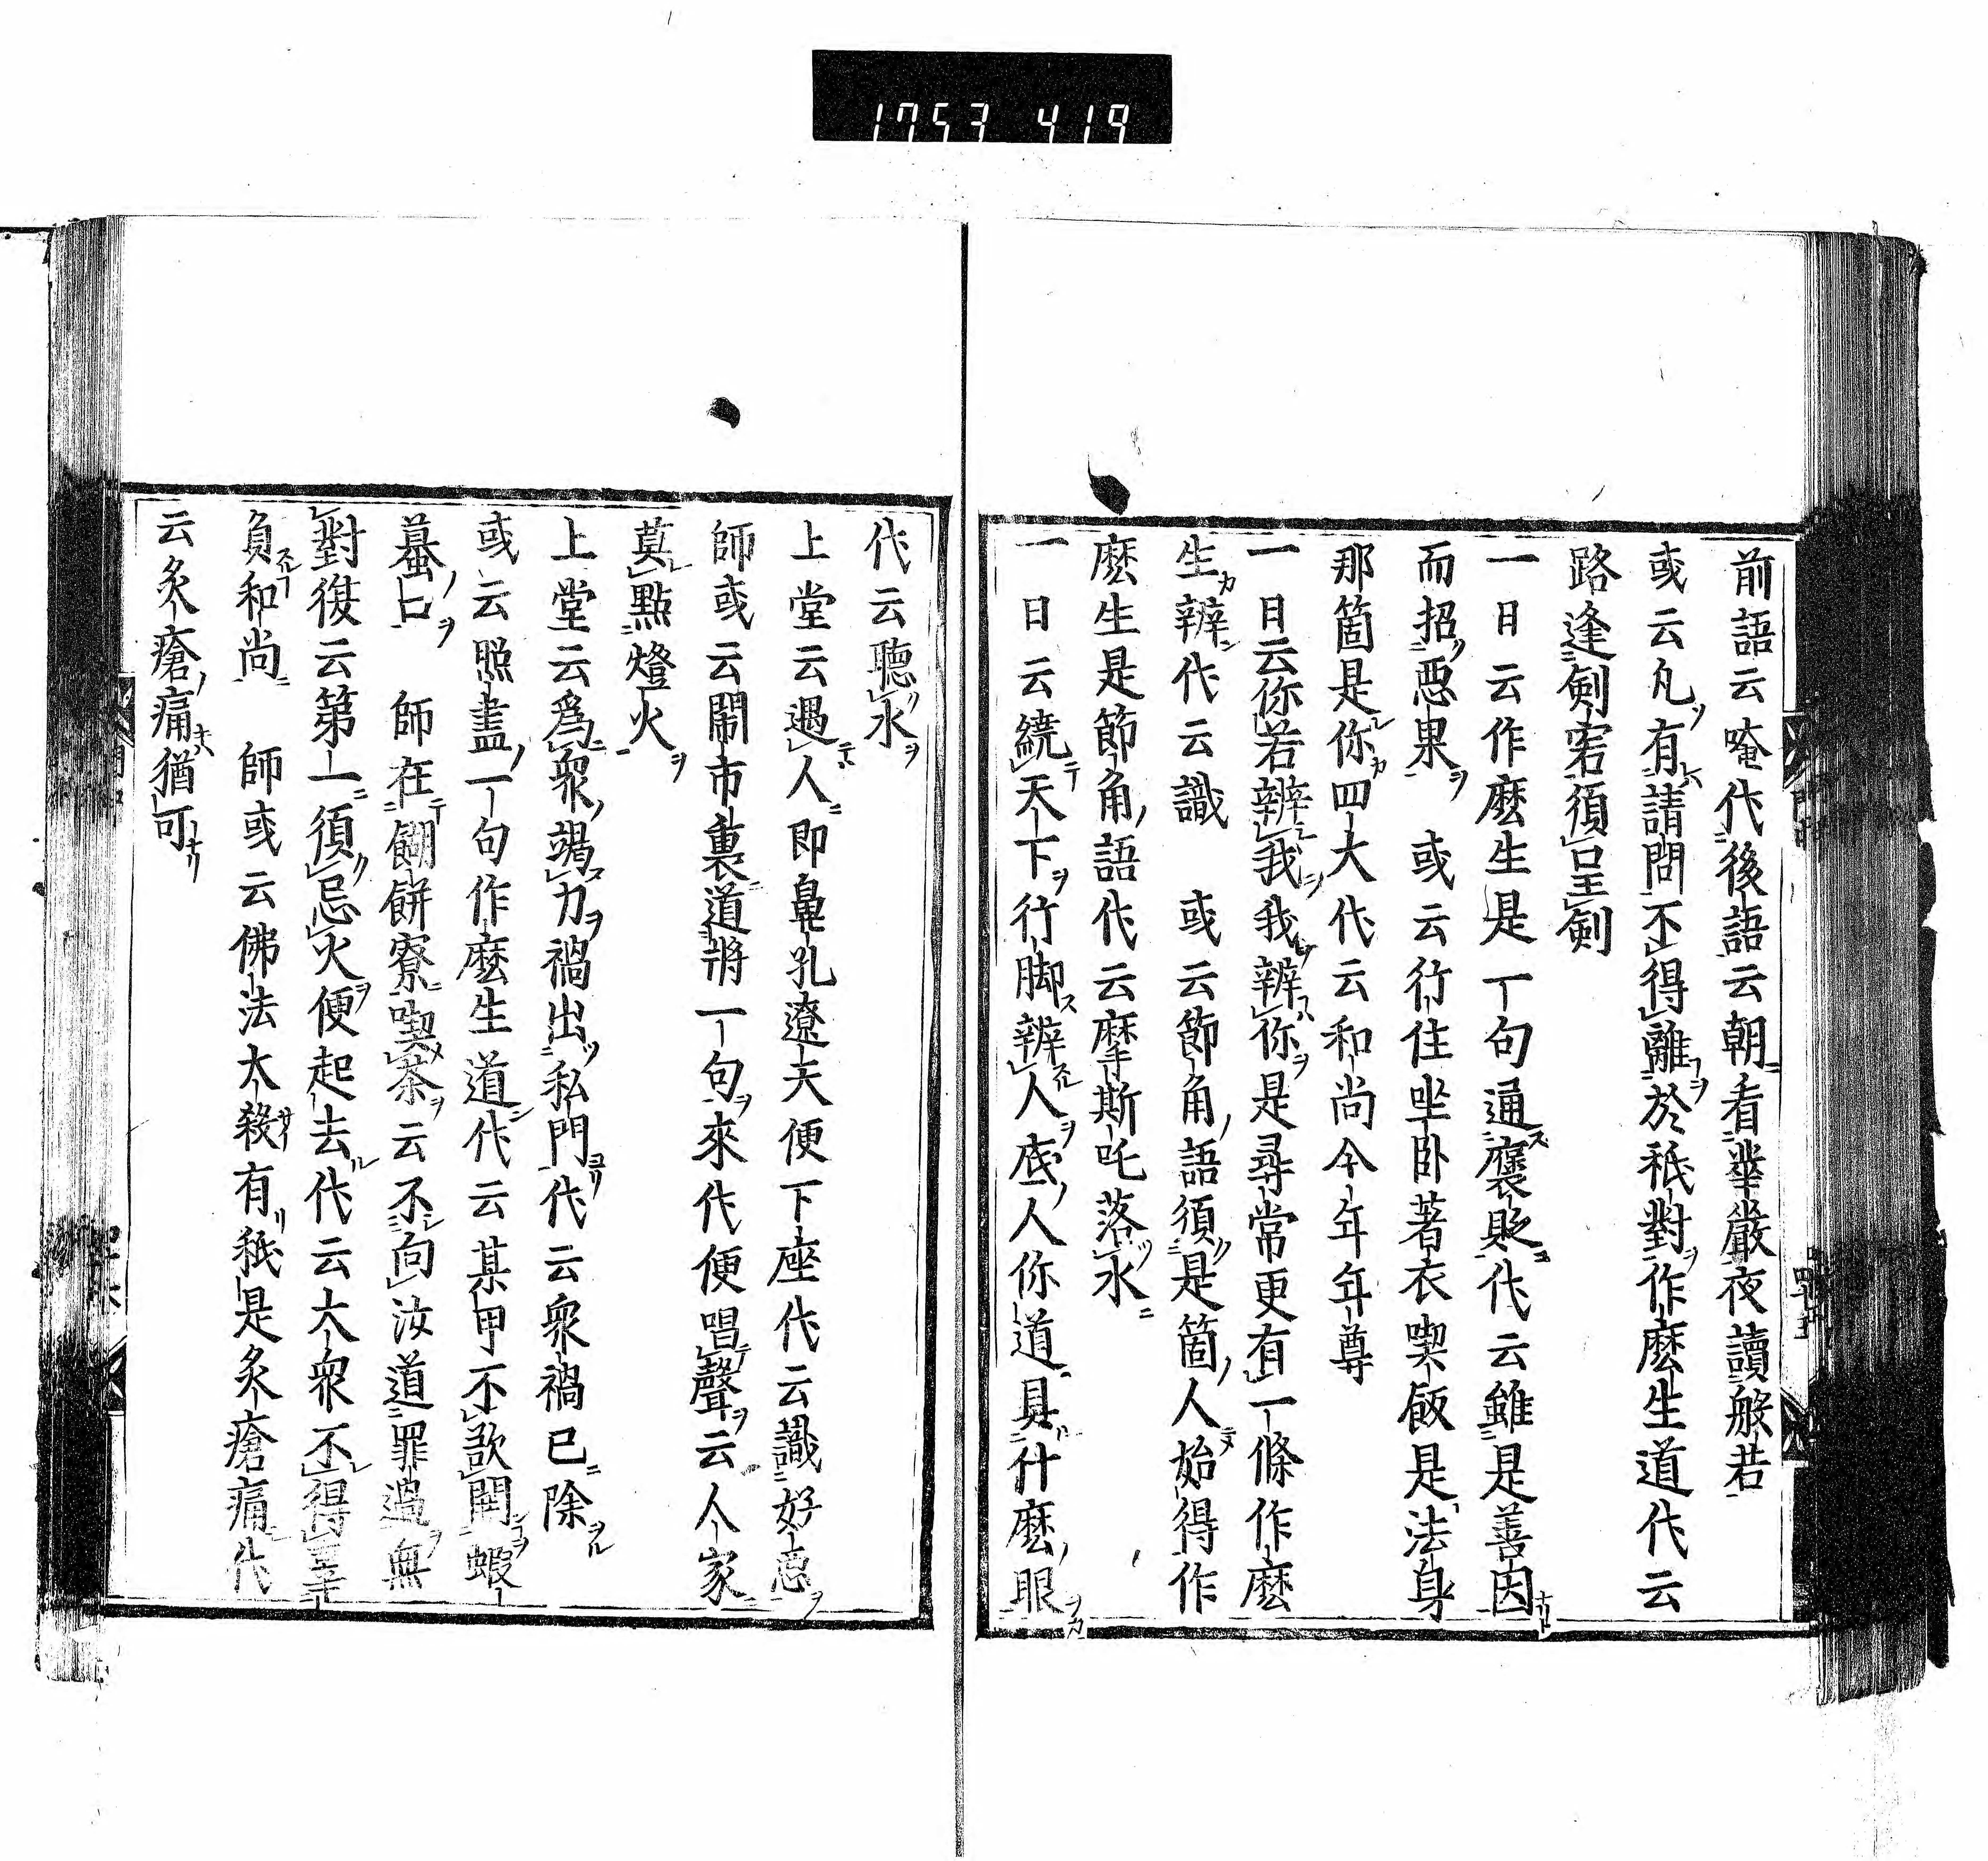 1753 419
前語云唵代後語云朝看華嚴夜讀般若
或云凡有請問不得離於秖對作麼生道代云
路逢剣客須呈剣
一日云作麼生是一句通褒貶代云雖是善因
而招惡果　或云行住坐卧著衣喫飯是法身
那箇是你四大代云和尚今年年尊
一日云你若辨我我辨你是尋常更有一條作麼
生辨代云識　或云節角語須是箇人始得作
麼生是節角語代云摩斯吒落水
一日云繞天下行脚辨人底人你道具什麼眼
代云聴水
上堂云遇人即鼻孔遼天便下座代云識好惡
師或云鬧市裏道將一句來代便唱聲云人家
莫點燈火
上堂云爲衆竭力禍出私門代云衆禍已除
或云照盡一句作麼生道代云某甲不欲開蝦
蟇口　師在餬餅寮喫茶云不向汝道罪過無
對復云第一須忌火便起去代云大衆不得辜
負和尚　師或云佛法大殺有秖是炙瘡痛代
云炙瘡痛猶可